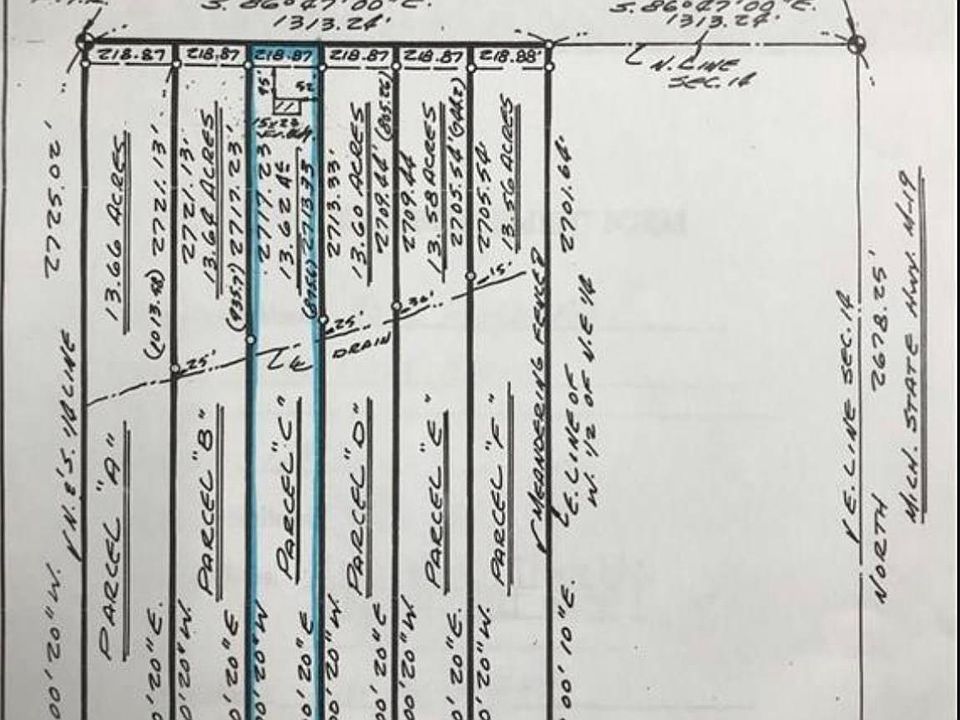 S. 86°47'00"E.
1313.24'
S. 86°47'00"E.
1313.24'
218.87
218.87
218.87
218.87
218.87
218.88'
N. LINE
SEC. 14
45'
52'
15x22
2725.02'
13.66 ACRES
(1013.48) 2721.13'
2721.13'
13.64 ACRES
(935.7') 2717.23'
2717.23'
13.62 AC
2713.33
2713.33'
13.60 ACRES
2709.44' (805.26)
2709.44
13.58 ACRES
2705.54'
2705.54'
13.56 ACRES
2701.64'
25'
25'
30'
15'
℄
DRAIN
N. & S. 1/4 LINE
PARCEL "A"
PARCEL "B"
PARCEL "C"
PARCEL "D"
PARCEL "E"
PARCEL "F"
MEANDERING FENCE?
E. LINE OF
W. 1/2 OF N.E. 1/4
E. LINE SEC. 14
NORTH 2678.25'
MICH. STATE HWY. M-19
00'20"W.
0'20"E.
0'20"W.
0'20"E
00'20"W
00'20"E
00'20"W.
00'20"E
00'20"W.
0'20"E.
0'20"W.
00'10"E.